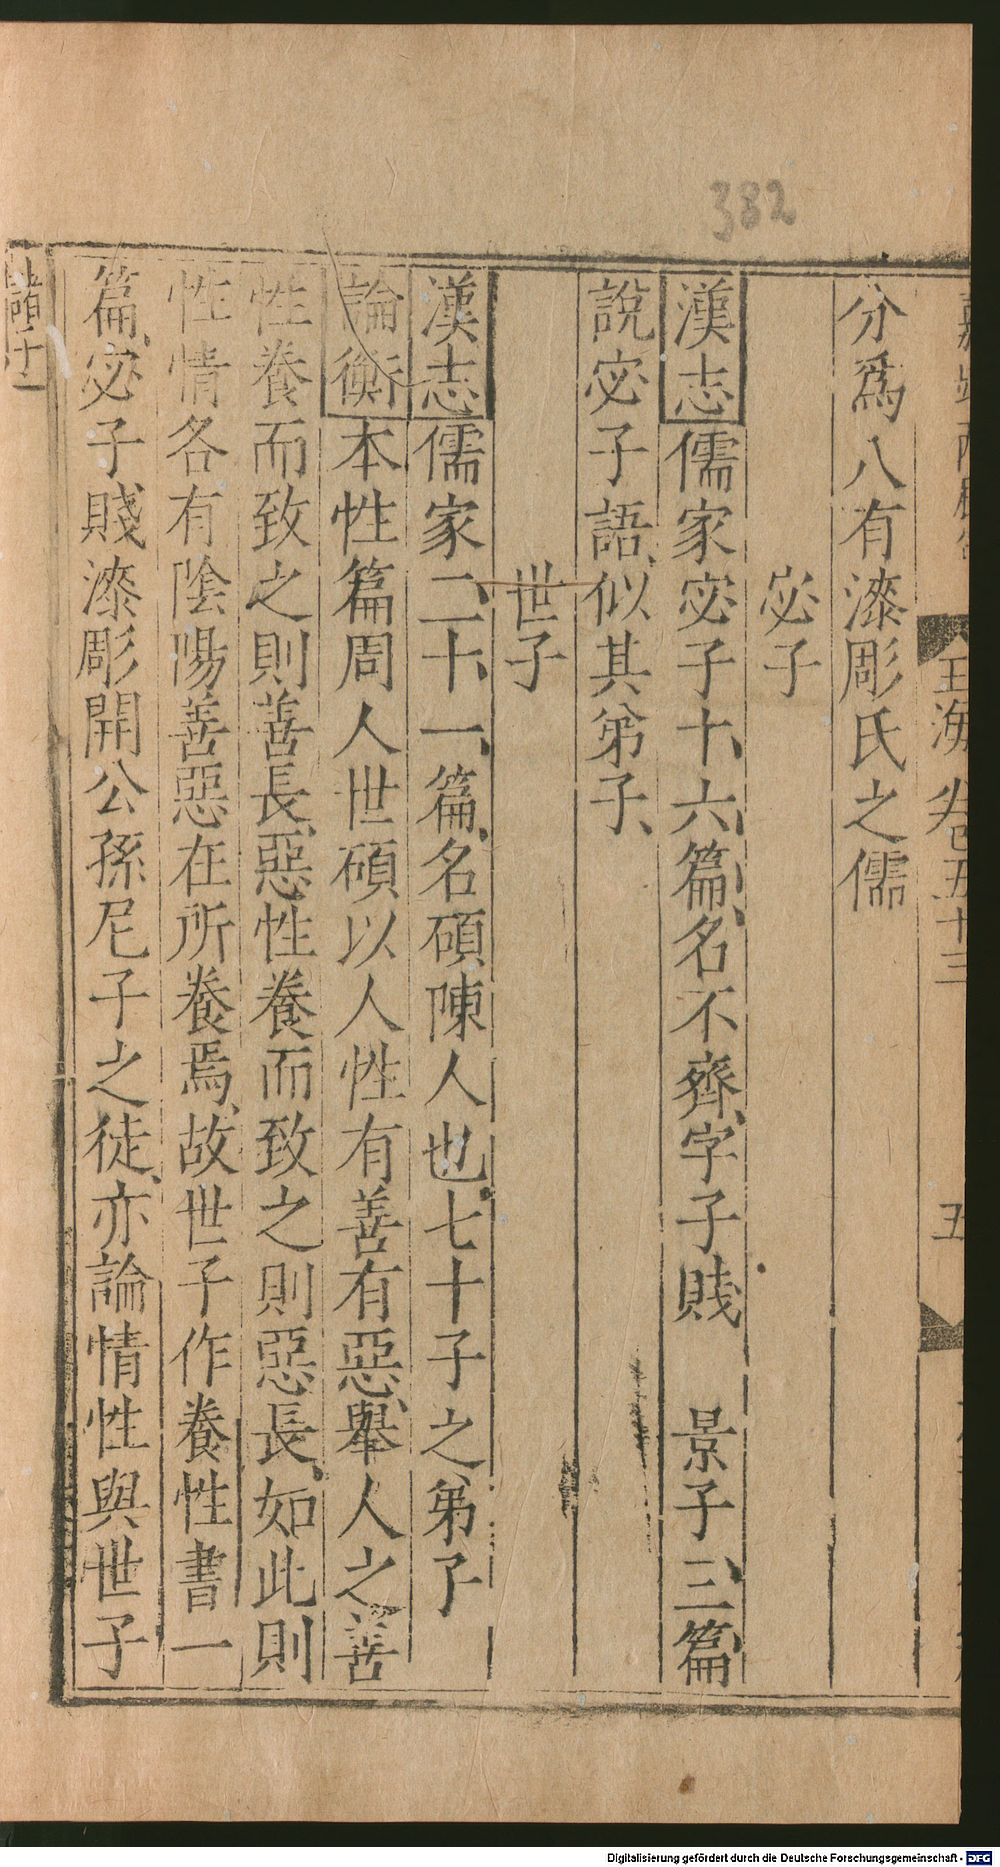 382
玉海卷五十三
五
分爲八有漆彫氏之儒
宓子
漢志儒家宓子十六篇名不齊字子賤 景子三篇
說宓子語似其弟子
世子
漢志儒家二十一篇名碩陳人也七十子之弟子
論衡本性篇周人世碩以人性有善有惡舉人之善
性養而致之則善長惡性養而致之則惡長如此則
性情各有陰陽善惡在所養焉故世子作養性書一
篇宓子賤漆彫開公孫尼子之徒亦論情性與世子
諸十一
Digitalisierung gefördert durch die Deutsche Forschungsgemeinschaft - DFG